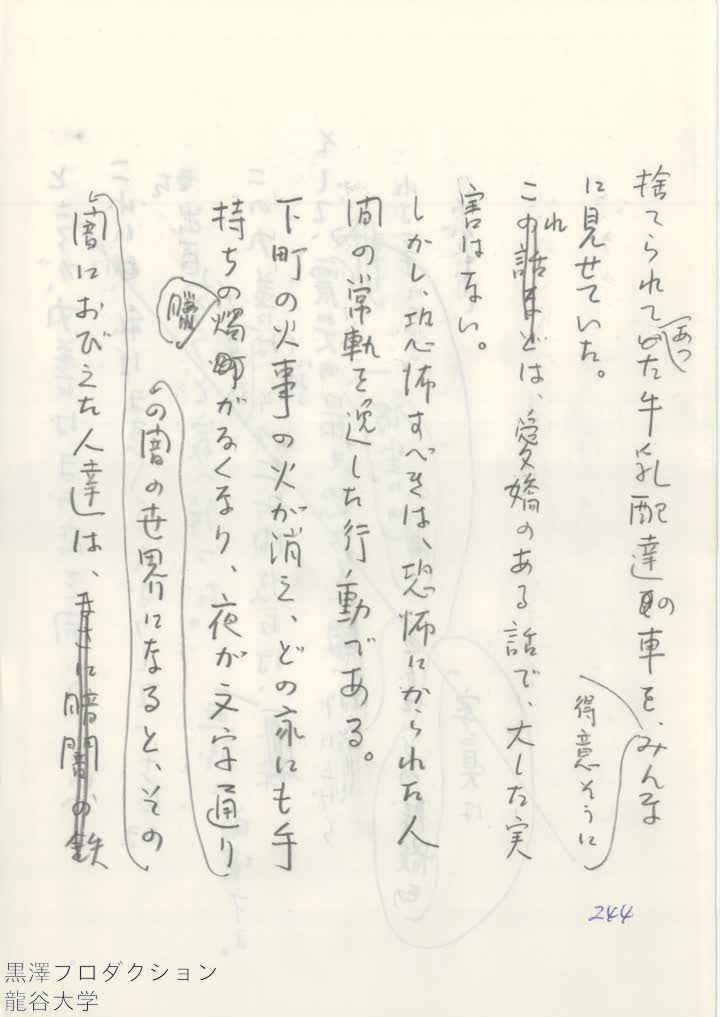 捨てられてあった牛乳配達の車を、得意そうにみんな
に見せていた。
これなどは、愛嬌のある話で、大した実
害はない。
しかし、恐怖すべきは、恐怖にかられた人
間の常軌を逸した行動である。
下町の火事の火が消え、どの家にも手
持ちの蠟燭がなくなり、夜が文字通り
の闇の世界になると、その
闇におびえた人達は、
244
黒澤プロダクション
龍谷大学